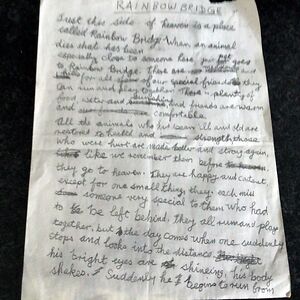 RAINBOW BRIDGE
Just this side of heaven is a place
called Rainbow Bridge. When an animal
dies that has been
especially close to someone here, pet goes
to Rainbow Bridge. There are
for all of our special friends
can run and play together. There plenty of
food, water and and friends are warm
and comfortable.
All the animals who had been ill and old are
restored to health and those
who were hurt are made better and strong again,
like we remember them before
they go to heaven. They are happy and content,
except for one small thing they each miss
someone very special to them who had
to be left behind, they all run and play
together, but the day comes when one suddenly
stops and looks into the distance.
his bright eyes are shineing, his body
shakes. Suddenly he begins to run from